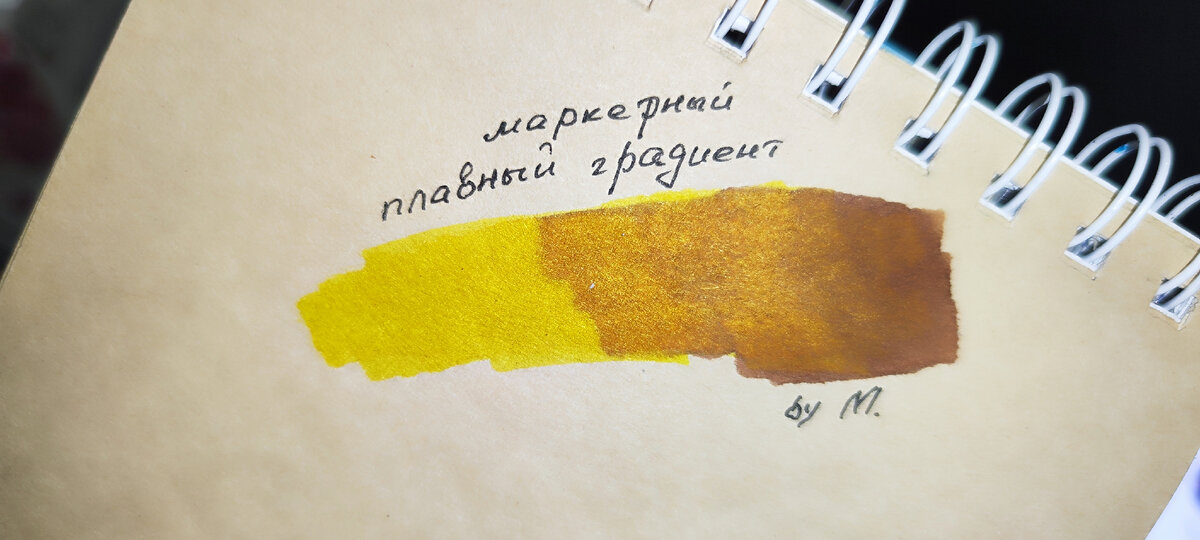 маркерный
плавный градиент
by M.